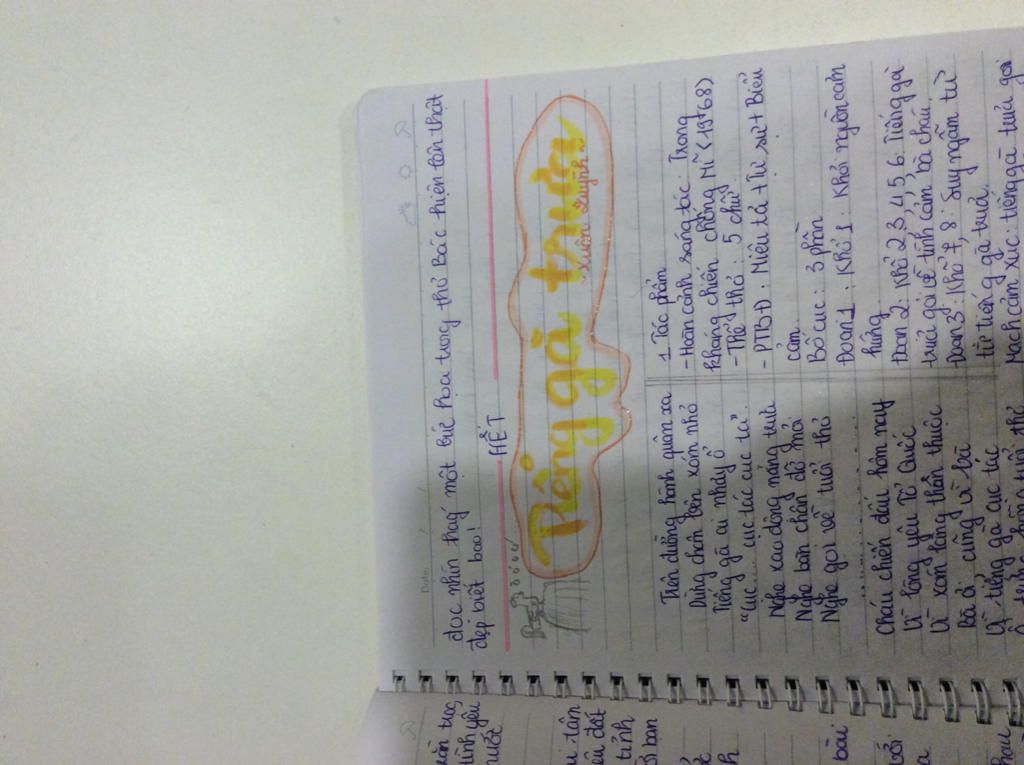 đọc nhìn thấy một bức họa tượng thủ Bác hiện lên thật
đẹp biết bao!
HẾT
Tiếng gà trưa
~ Xuân Quỳnh ~
Trên đường hành quân xa
Dừng chân bên xóm nhỏ
Tiếng gà ai nhảy ổ
"Cục... cục tác cục ta"
Nghe xao động nắng trưa
Nghe bàn chân đỡ mỏi
Nghe gọi về tuổi thơ
Cháu chiến đấu hôm nay
Vì lòng yêu Tổ Quốc
Vì xóm làng thân thuộc
Bà ơi cũng vì bà
Vì tiếng gà cục tác
1 Tác phẩm
- Hoàn cảnh sáng tác: Trong
kháng chiến chống Mĩ (1968)
- Thể thơ: 5 chữ
- PTBĐ: Miêu tả + Tự sự + Biểu
cảm.
Bố cục: 3 phần
Đoạn 1: Khổ 1: Khơi nguồn cảm
hứng
Đoạn 2: Khổ 2, 3, 4, 5, 6: Tiếng gà
trưa gọi về tình cảm bà cháu.
Đoạn 3: Khổ 7, 8: Suy ngẫm từ
tiếng gà trưa.
Mạch cảm xúc: tiếng gà trưa gọi
tình yêu